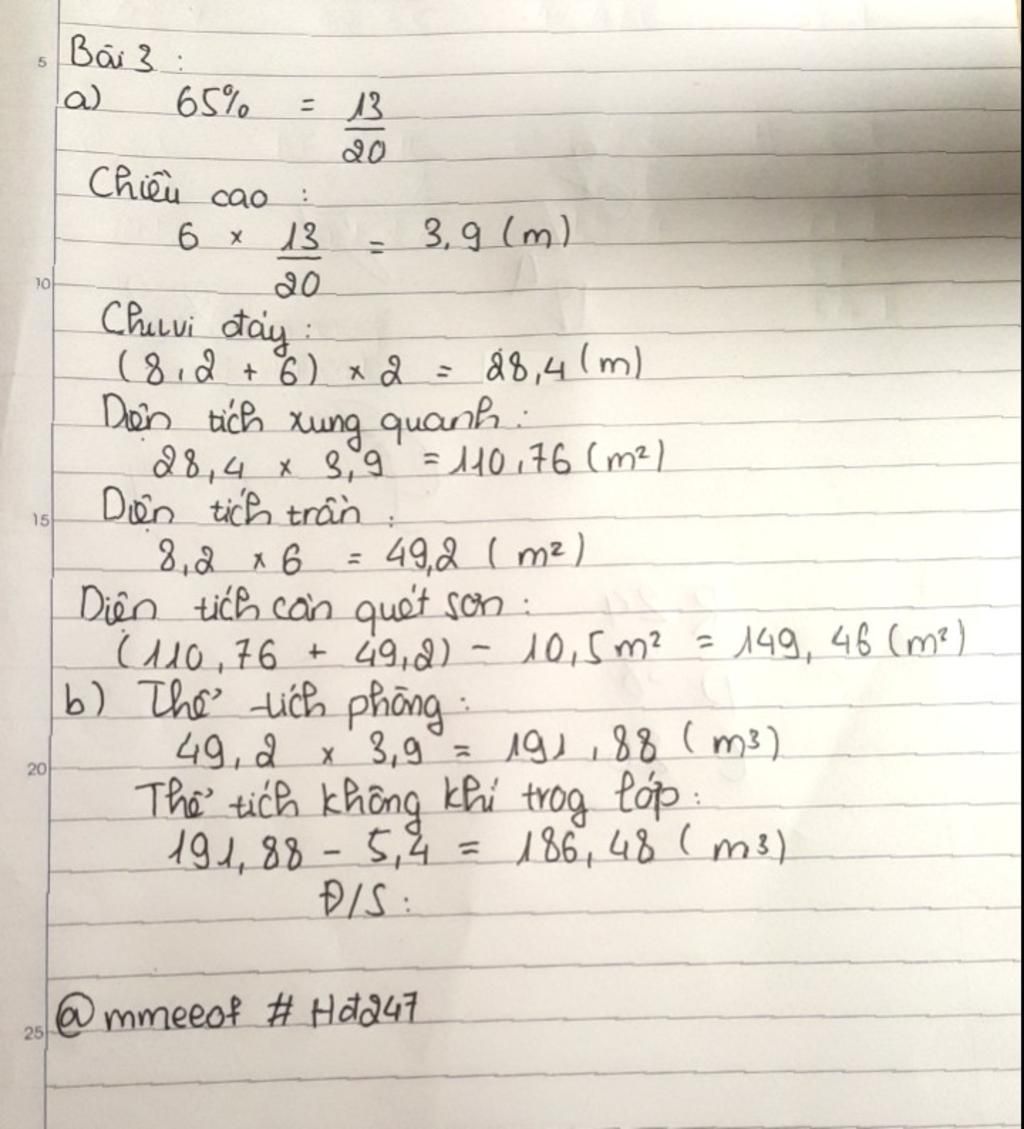 5
Bài 3 :
a) 65% = 13/20
Chiều cao :
6 × 13/20 = 3,9 (m)
10
Chu vi đáy :
(8,2 + 6) × 2 = 28,4 (m)
Diện tích xung quanh :
28,4 × 3,9 = 110,76 (m²)
15
Diện tích trần :
8,2 × 6 = 49,2 (m²)
Diện tích cần quét sơn :
(110,76 + 49,2) - 10,5m² = 149,46 (m²)
b) Thể tích phòng :
49,2 × 3,9 = 191,88 (m3)
20
Thể tích không khí trog lớp :
191,88 - 5,4 = 186,48 (m3)
Đ/S :
@mmeeof # Hđ247
25